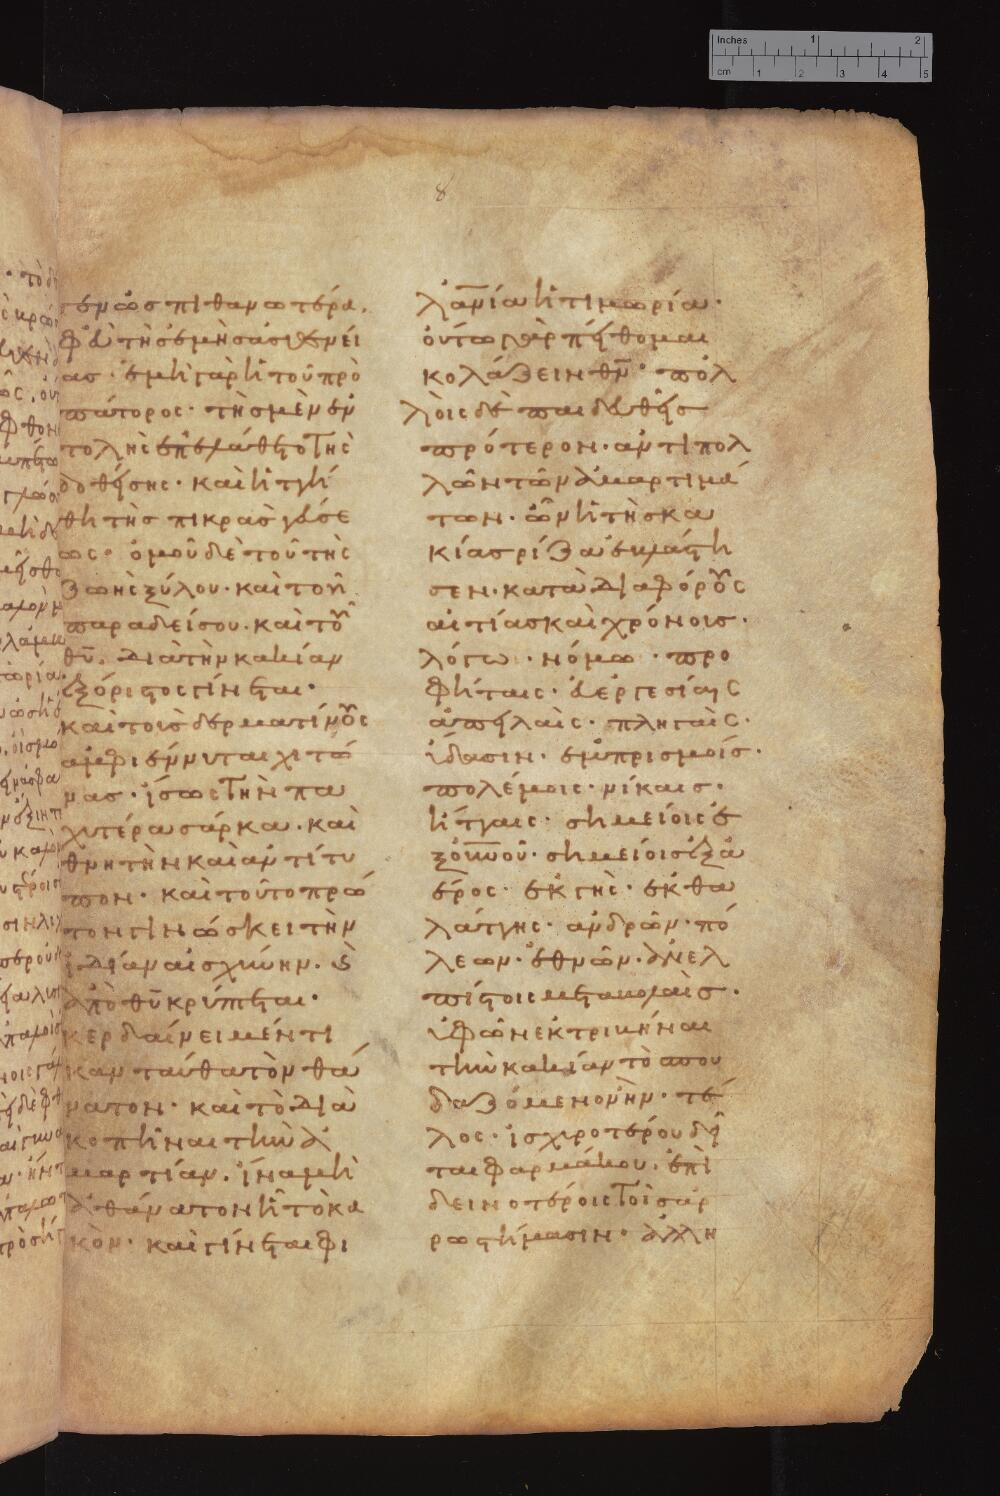 8
γεν ὡς πιθανωτέρα.
φεῦ τῆς ἐμῆς ἀσθενεί
ας· ἐμὴ γὰρ ἡ τοῦ προ
πάτορος· τῆς μὲν ἐν
τολῆς ἐπελάθετο τῆς
δοθείσης· καὶ ἡττή
θη τῆς πικρᾶς γεύσε
ως· ὁμοῦ δὲ τοῦ τῆς
ζωῆς ξύλου· καὶ τοῦ
παραδείσου· καὶ τοῦ
θῦ· διὰ τὴν κακίαν
ἐξόριστος γίνεται·
καὶ τοὺς δερματίνους
ἀμφιέννυται χιτῶ
νας· ἴσως τὴν πα
χυτέραν σάρκα· καὶ
θνητὴν καὶ ἀντίτυ
πον· καὶ τοῦτο πρῶ
τον γινώσκει τὴν
ἰδίαν αἰσχύνην· καὶ
ἀπὸ θῦ κρύπτεται·
κερδαίνει μέν τι
κἀνταῦθα τὸν θά
νατον· καὶ τὸ δια
κοπῆναι τὴν ἁ
μαρτίαν· ἵνα μὴ
ἀθάνατον ᾖ τὸ κα
κόν· καὶ γίνεται φι
λανία ἡ τιμωρία·
οὕτω γὰρ πείθομαι
κολάζειν θν· πολ
λοῖς δὲ παιδευθεὶς
πρότερον· ἀντὶ πολ
λῶν τῶν ἁμαρτημά
των· ὧν ἡ τῆς κα
κίας ῥίζα ἐβλάστη
σεν· κατὰ διαφόρους
αἰτίας καὶ χρόνους·
λόγῳ· νόμῳ· προ
φήταις· εὐεργεσίαις
ἀπειλαῖς· πληγαῖς·
ὕδασιν· ἐμπρισμοῖς·
πολέμοις· νίκαις·
ἥτταις· σημείοις ἐ
ξ οὐνοῦ· σημείοις ἐξ ἀ
έρος· ἐκ γῆς· ἐκ θα
λάττης· ἀνδρῶν· πό
λεων· ἐθνῶν· ἀνελ
πίστοις μεταβολαῖς·
ὑφ' ὧν ἐκτριβῆναι
τὴν κακίαν τὸ σπου
δαζόμενον ἦν· τέ
λος· ἰσχυροτέρου δεῖ
ται φαρμάκου· ἐπὶ
δεινοτέροις τοῖς ἀρ
ρωστήμασιν· ἀλλη